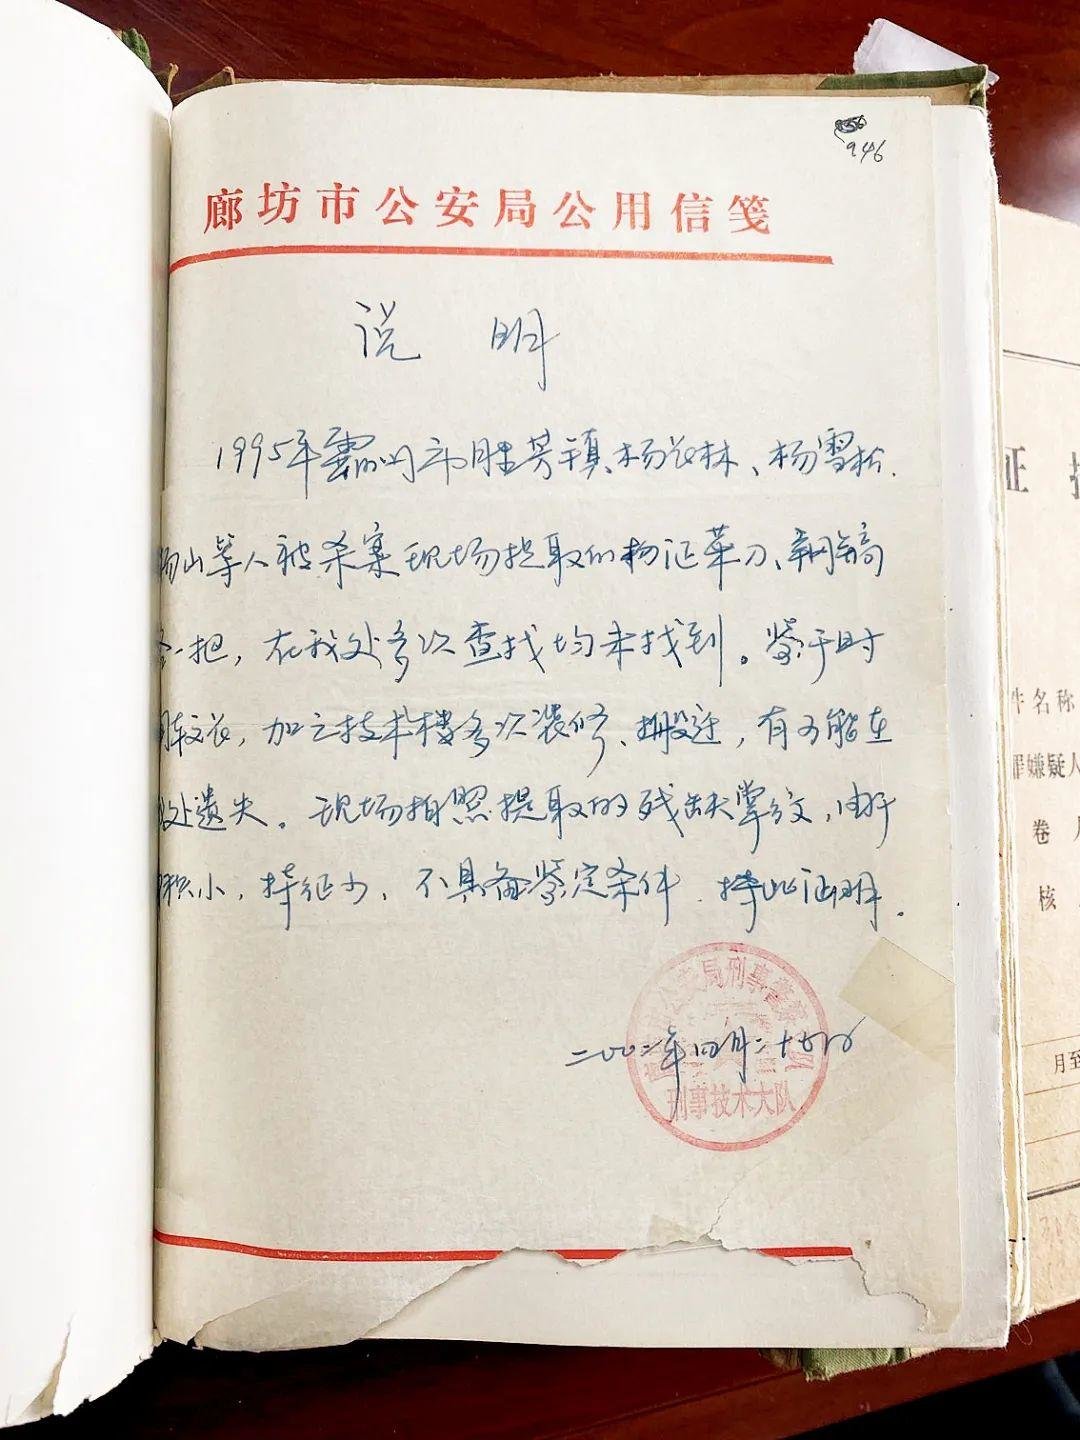 946
廊坊市公安局公用信笺
说 明
1995年霸州市胜芳镇杨长林、杨雪松、
杨山等人被杀案现场提取的物证菜刀、钢镐
各一把，在我处多次查找均未找到。鉴于时
间较长，加之技术楼多次装修、搬迁，有可能在
我处遗失。现场拍照提取的残缺掌纹，由于
面积小，特征少，不具备鉴定条件。特此证明。
市公安局刑事警察支队
刑事技术大队
二〇〇二年四月二十
证据
件名称
罪嫌疑人
卷
核
月至